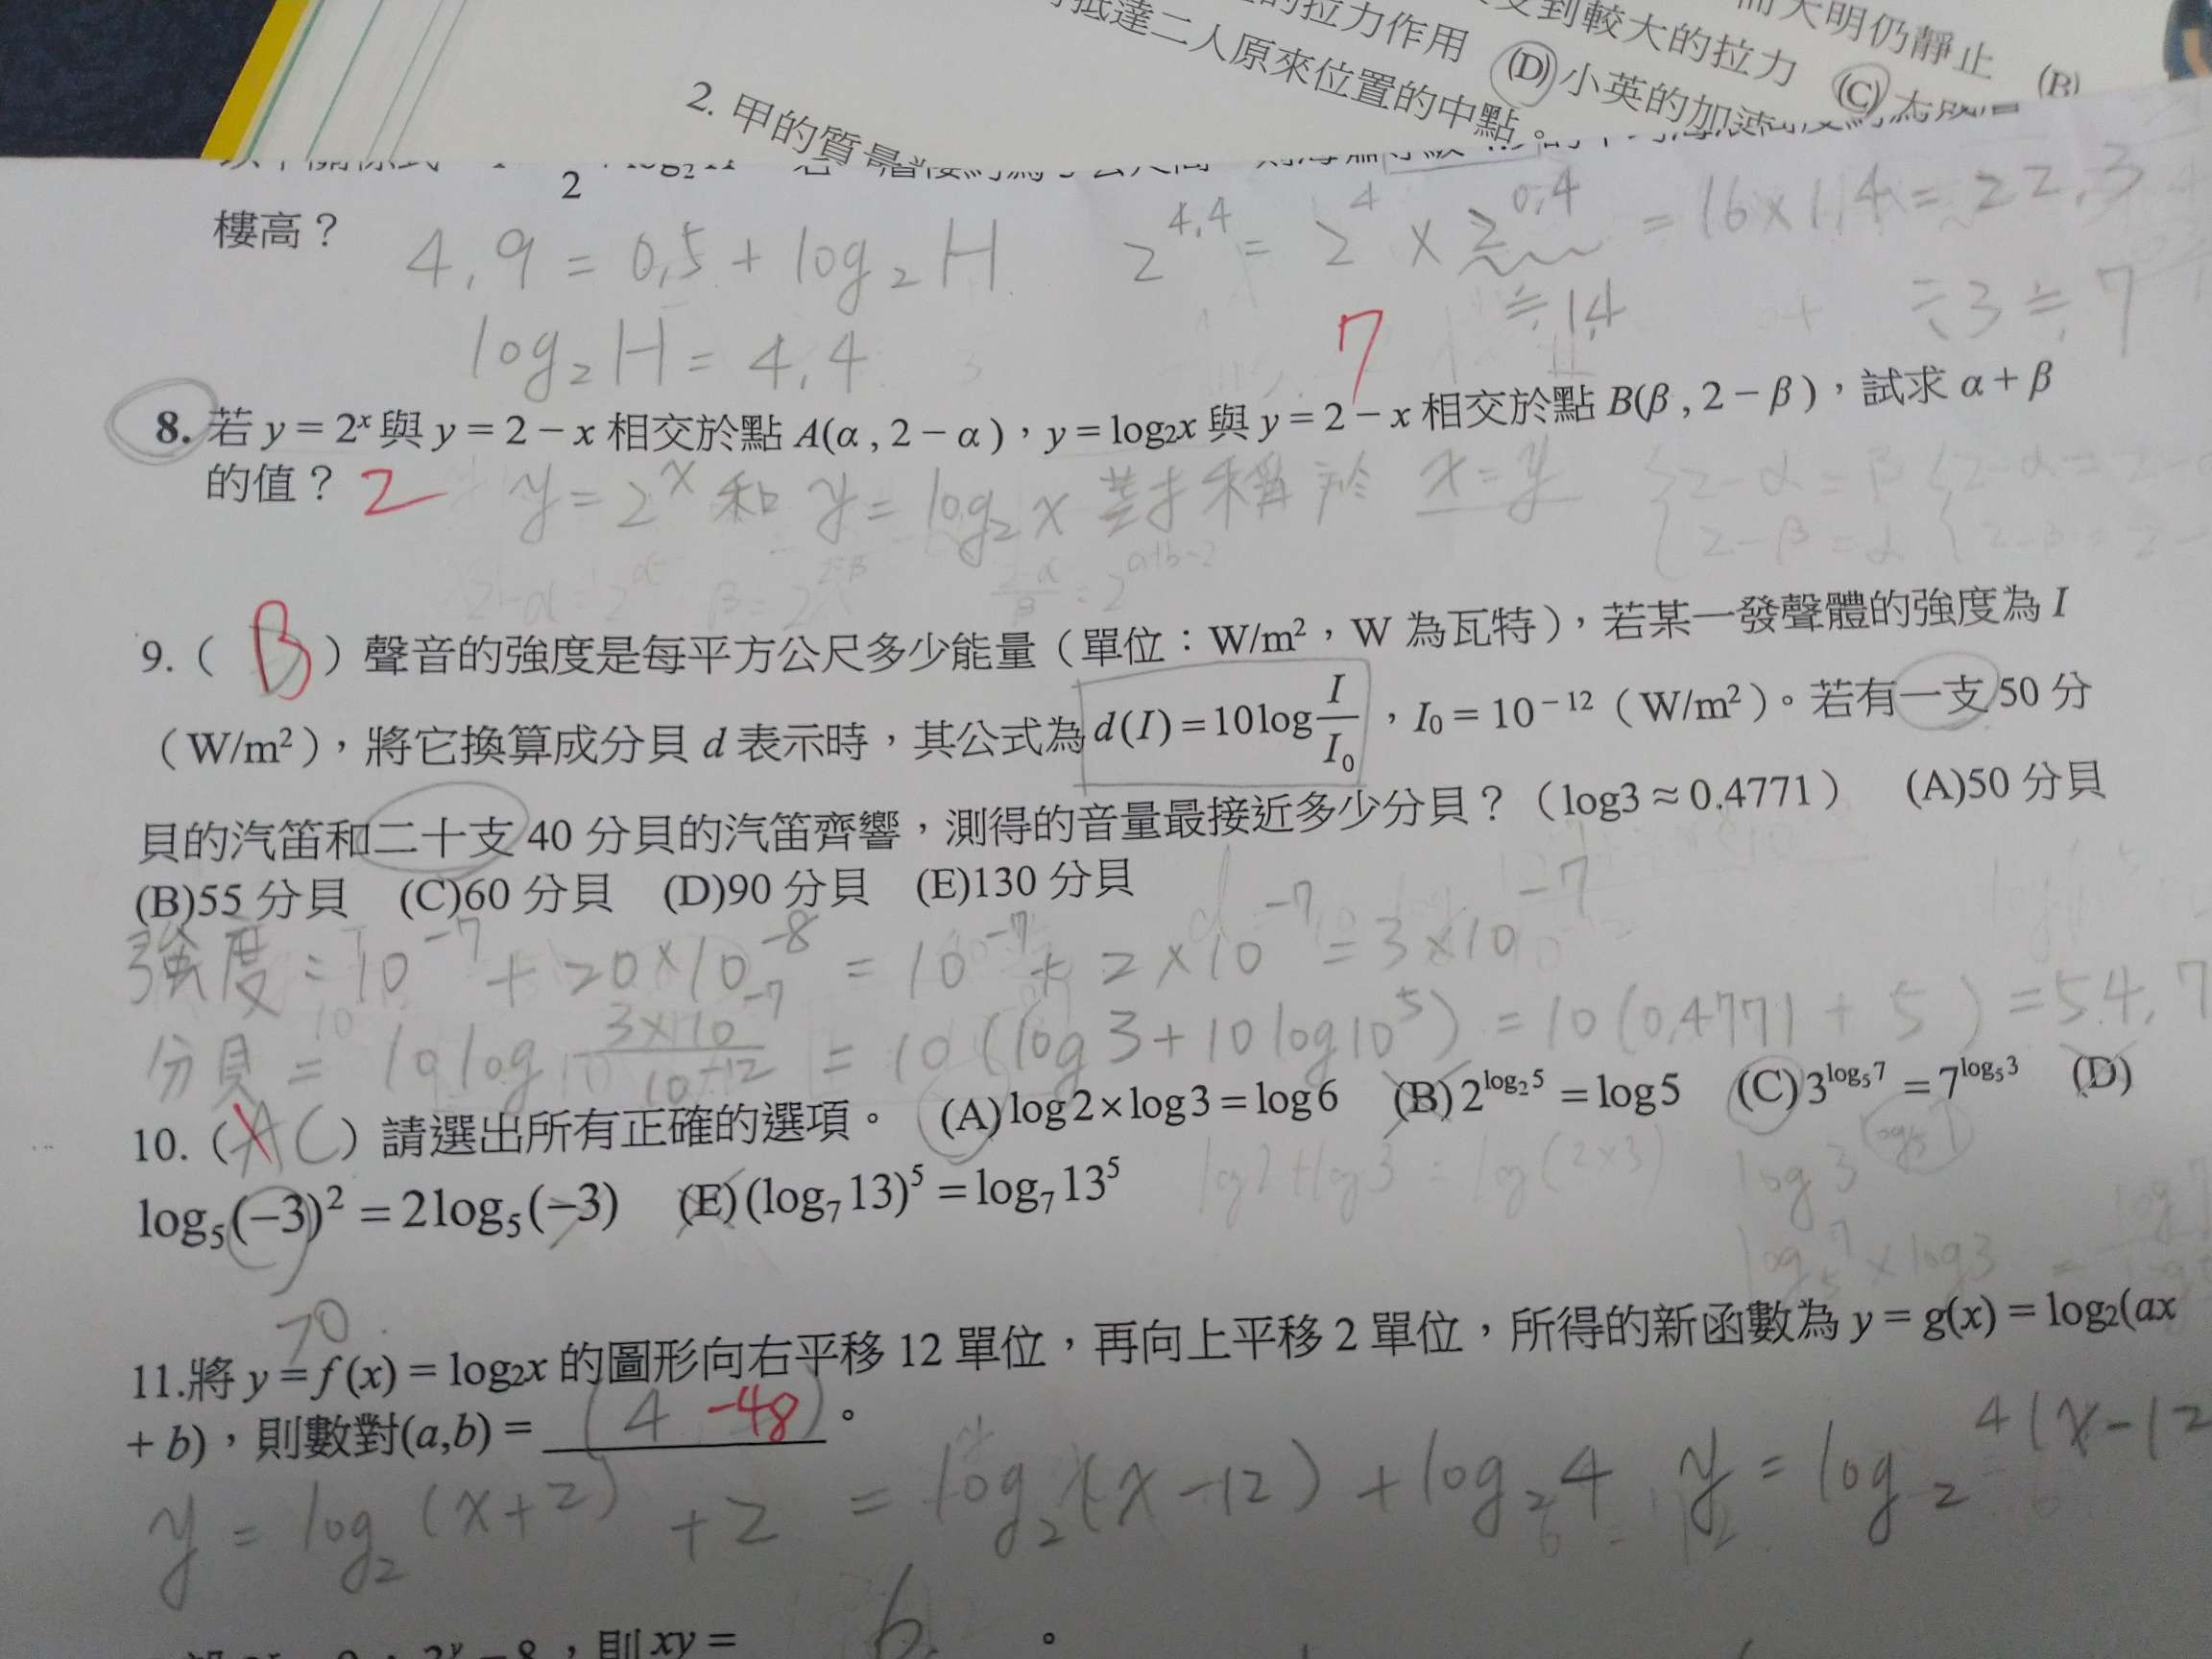 而大明仍靜止 (B)
的拉力作用 (D)小英的加速 受到較大的拉力 (C)
抵達二人原來位置的中點。
2. 甲的質量
樓高?
4.9 = 0.5 + log₂H
2^4.4 = 2^4 × 2^0.4 = 16×1.4 = 22.3
≒1.4
÷3≒7
log₂H = 4.4
7
8. 若 y = 2ˣ 與 y = 2 − x 相交於點 A(α , 2 − α),y = log₂x 與 y = 2 − x 相交於點 B(β , 2 − β),試求 α + β
的值? 2
y = 2ˣ 和 y = log₂x 對稱於 x=y
9. ( B ) 聲音的強度是每平方公尺多少能量(單位:W/m²,W 為瓦特),若某一發聲體的強度為 I
(W/m²),將它換算成分貝 d 表示時,其公式為 d(I) = 10log I/I₀ ,I₀ = 10⁻¹² (W/m²)。若有一支 50 分
貝的汽笛和二十支 40 分貝的汽笛齊響,測得的音量最接近多少分貝?(log3 ≈ 0.4771) (A)50 分貝
(B)55 分貝 (C)60 分貝 (D)90 分貝 (E)130 分貝
強度 = 10⁻⁷ + 20×10⁻⁸ = 10⁻⁷ + 2×10⁻⁷ = 3×10⁻⁷
分貝 = 10log 3×10⁻⁷/10⁻¹² = 10(log3+10log10⁵) = 10(0.4771+5) = 54.7
10. (AC) 請選出所有正確的選項。 (A) log2×log3 = log6 (B) 2^log₂5 = log5 (C) 3^log₅7 = 7^log₅3 (D)
log₅(−3)² = 2log₅(−3) (E) (log₇13)⁵ = log₇13⁵
log2+log3 = log(2×3)
>0
11.將 y = f (x) = log₂x 的圖形向右平移 12 單位,再向上平移 2 單位,所得的新函數為 y = g(x) = log₂(ax
+ b),則數對(a,b) = (4 -48)。
y = log₂(x+2) +2 = log₂(x−12) + log₂4 y = log₂4(x−12
則 xy = 6 。